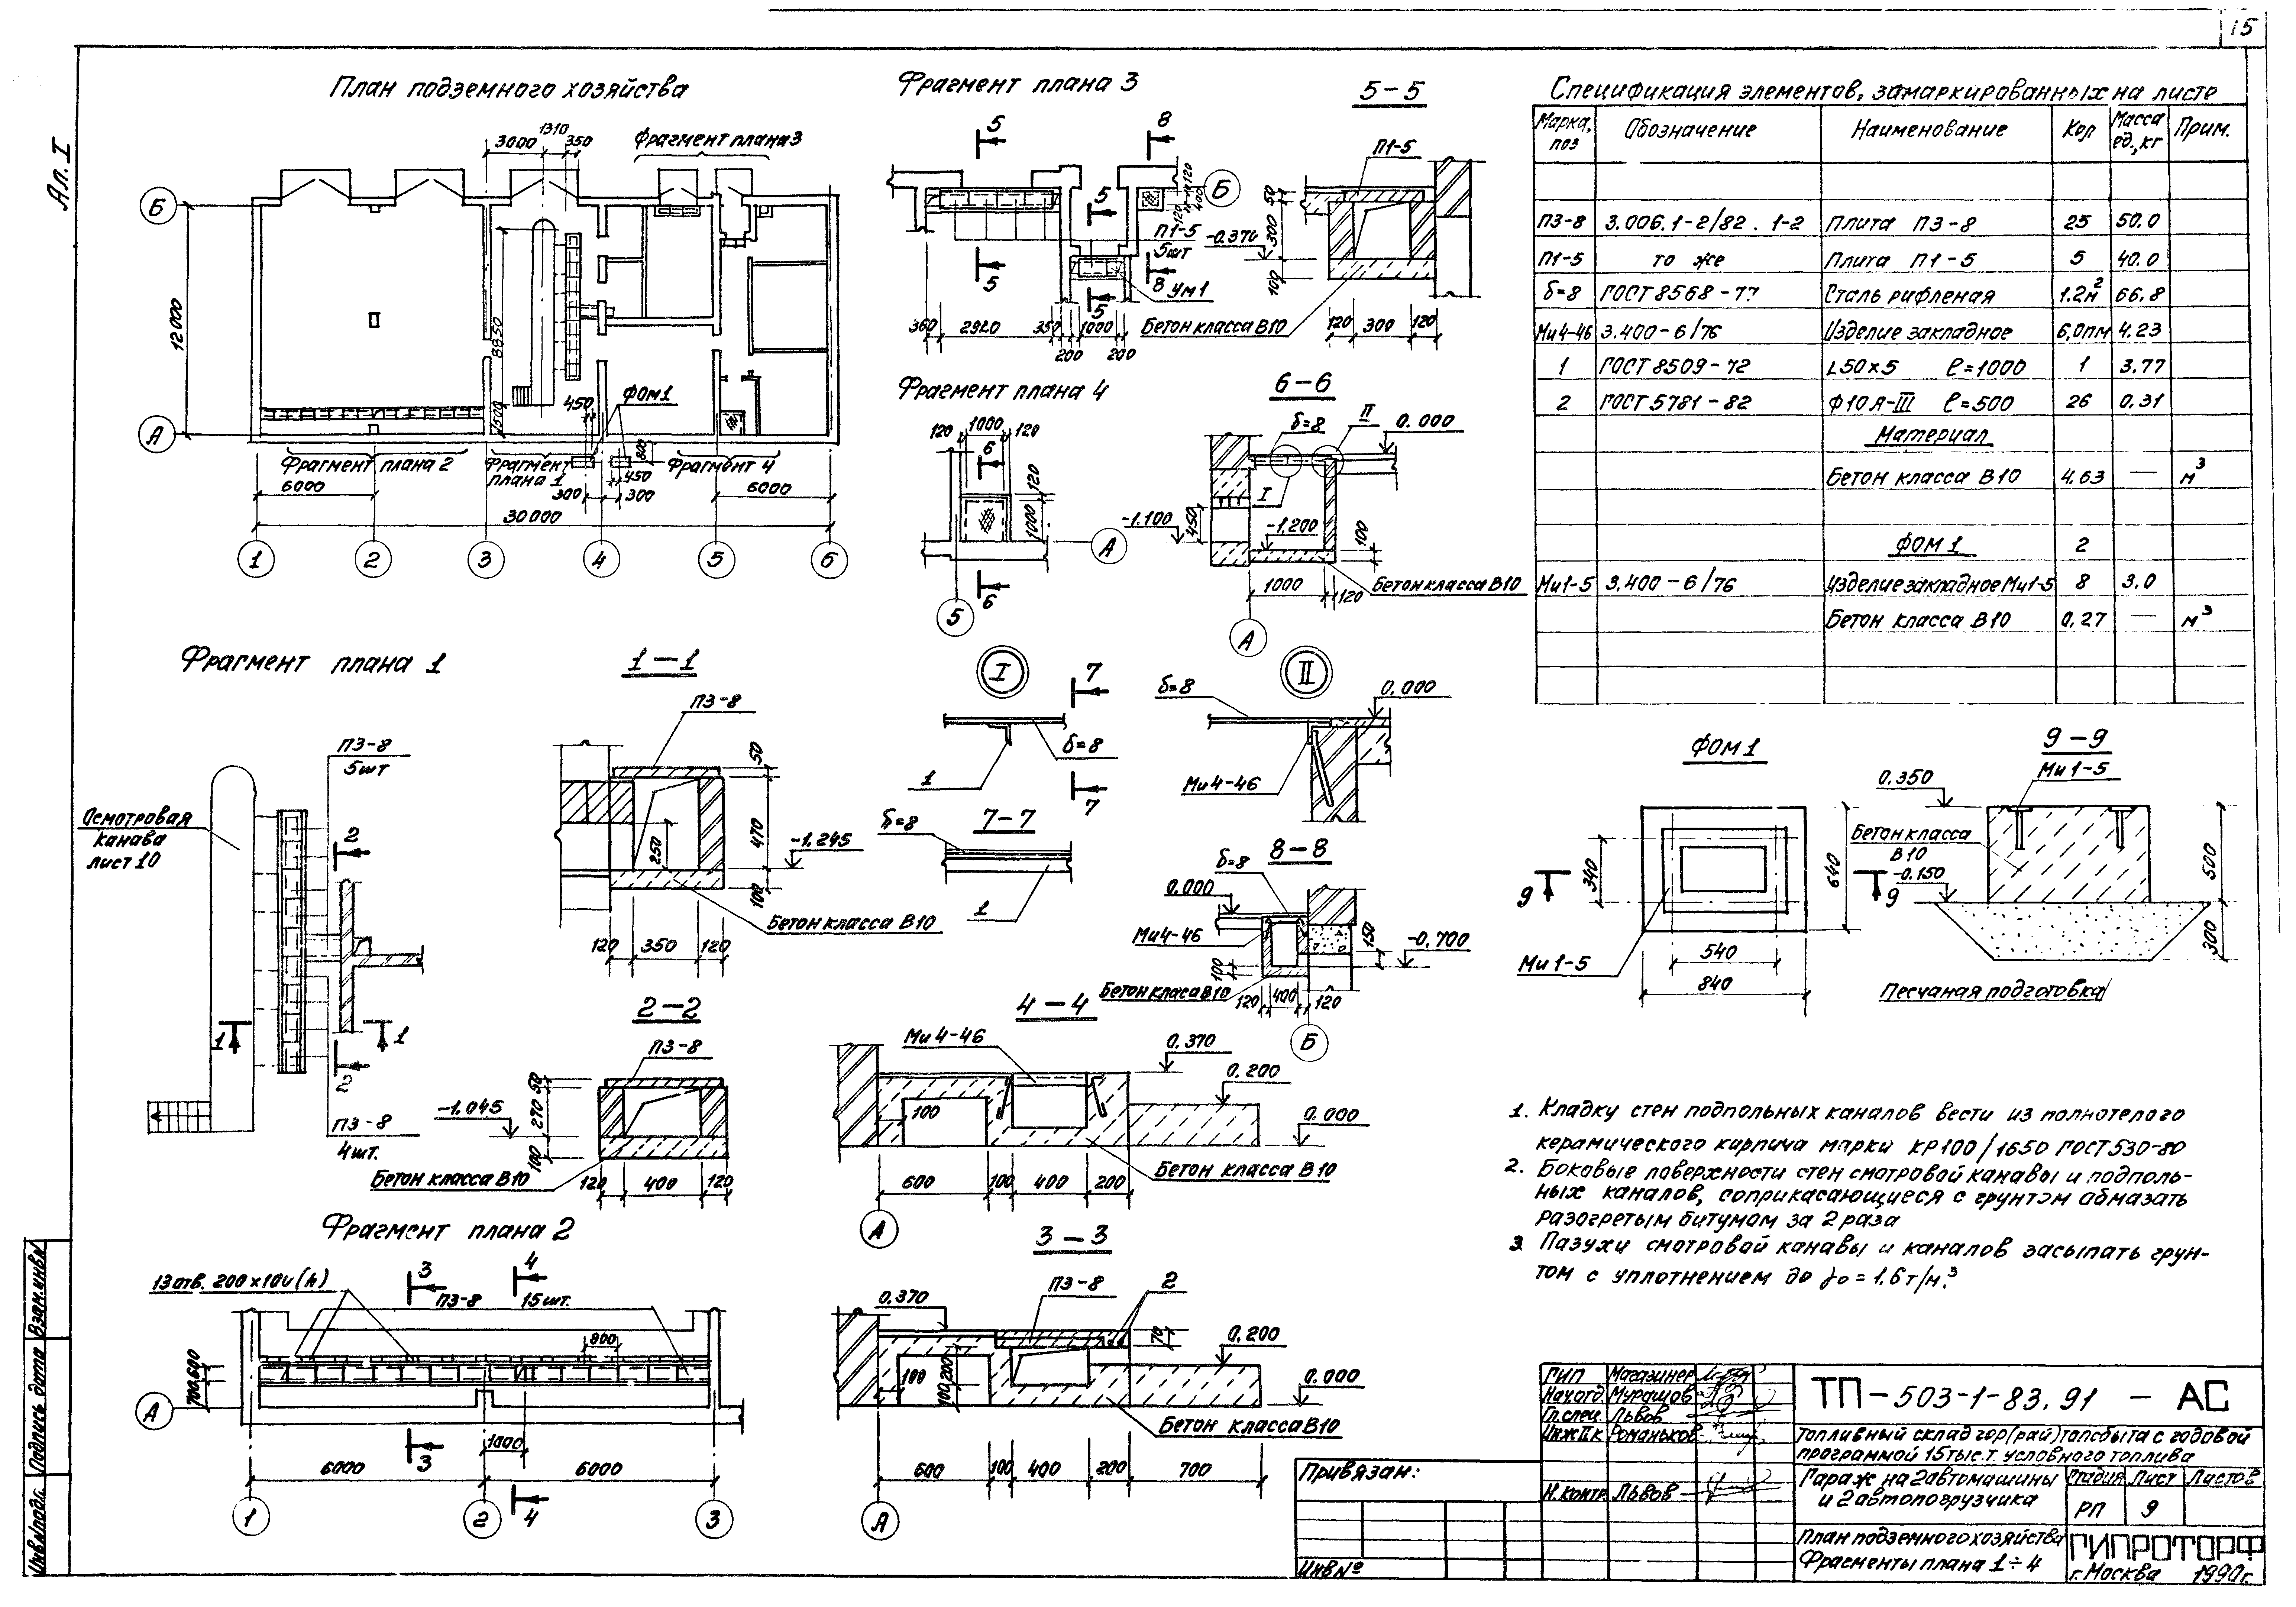 15
Ал. I
План подземного хозяйства
3000
1310
350
Фрагмент плана 3
Б
12000
8850
1500
450
ФОМ1
А
800
Фрагмент плана 2
Фрагмент
плана 1
Фрагмент 4
450
6000
300
300
6000
30000
1
2
3
4
5
6
Фрагмент плана 3
5
8
120
400
120
Б
5
П1-5
5шт
-0.370
5
8
5
Ум1
360
2920
350
1000
200
200
5-5
П1-5
50
300
100
Бетон класса В10
120
300
120
Фрагмент плана 4
120
1000
120
6
120
1000
А
6
5
6-6
δ=8
II
0.000
I
-1.100
450
-1.200
100
Бетон класса В10
1000
120
А
Спецификация элементов, замаркированных на листе
Марка, поз
Обозначение
Наименование
Кол
Масса ед., кг
Прим.
П3-8 3.006.1-2/82. 1-2 Плита П3-8 25 50.0
П1-5 то же Плита П1-5 5 40.0
δ=8 ГОСТ 8568-77 Сталь рифленая 1.2м² 66.8
Ми4-46 3.400-6/76 Изделие закладное 6,0пм 4.23
1 ГОСТ 8509-72 L50×5 ℓ=1000 1 3.77
2 ГОСТ 5781-82 Ф10А-III ℓ=500 26 0.31
Материал
Бетон класса В10 4.63 — м³
ФОМ1 2
Ми1-5 3.400-6/76 Изделие закладное Ми1-5 8 3.0
Бетон класса В10 0.27 — м³
Фрагмент плана 1
П3-8
5шт
Осмотровая
канава
лист 10
2
1
1
2
П3-8
4шт.
1-1
П3-8
50
470
250
-1.245
100
Бетон класса В10
120
350
120
2-2
П3-8
50
270
-1.045
100
Бетон класса В10
120
400
120
I
7
δ=8
1
7
7-7
δ=8
1
II
δ=8
0.000
Ми4-46
8-8
δ=8
0.000
Ми4-46
150
-0.700
100
Бетон класа В10
120
400
120
Б
ФОМ1
340
640
9
9
Ми1-5
540
840
9-9
0.350
Ми1-5
Бетон класса
В10
-0.150
500
300
Песчаная подготовка
4-4
Ми4-46
0.370
0.200
100
0.000
Бетон класса В10
600
100
400
200
А
3-3
П3-8
2
0.370
70
0.200
100
100
200
0.000
Бетон класса В10
600
100
400
200
700
А
Фрагмент плана 2
13 отв. 200×100(h)
3
4
П3-8 15шт.
800
600
700
А
3
1000
6000
6000
4
1
2
3
1. Кладку стен подпольных каналов вести из полнотелого
керамического кирпича марки КР100/1650 ГОСТ 530-80
2. Боковые поверхности стен смотровой канавы и подполь-
ных каналов, соприкасающиеся с грунтом обмазать
разогретым битумом за 2 раза
3. Пазухи смотровой канавы и каналов засыпать грун-
том с уплотнением до γо=1.6т/м.³
Привязан:
Инв №
ГИП Магазинер
Нач.отд Мурашов
Гл.спец. Львов
Инж II к Романьков
Н.контр Львов
ТП-503-1-83.91 - АС
Топливный склад гор(рай)топсбыта с годовой
программой 15тыс.т. условного топлива
Гараж на 2 автомашины
и 2 автопогрузчика
Стадия Лист Листов
РП 9
План подземного хозяйства
Фрагменты плана 1÷4
ГИПРОТОРФ
г.Москва 1990г.
Взам.инв№
Подпись дата
Инв.№подл.